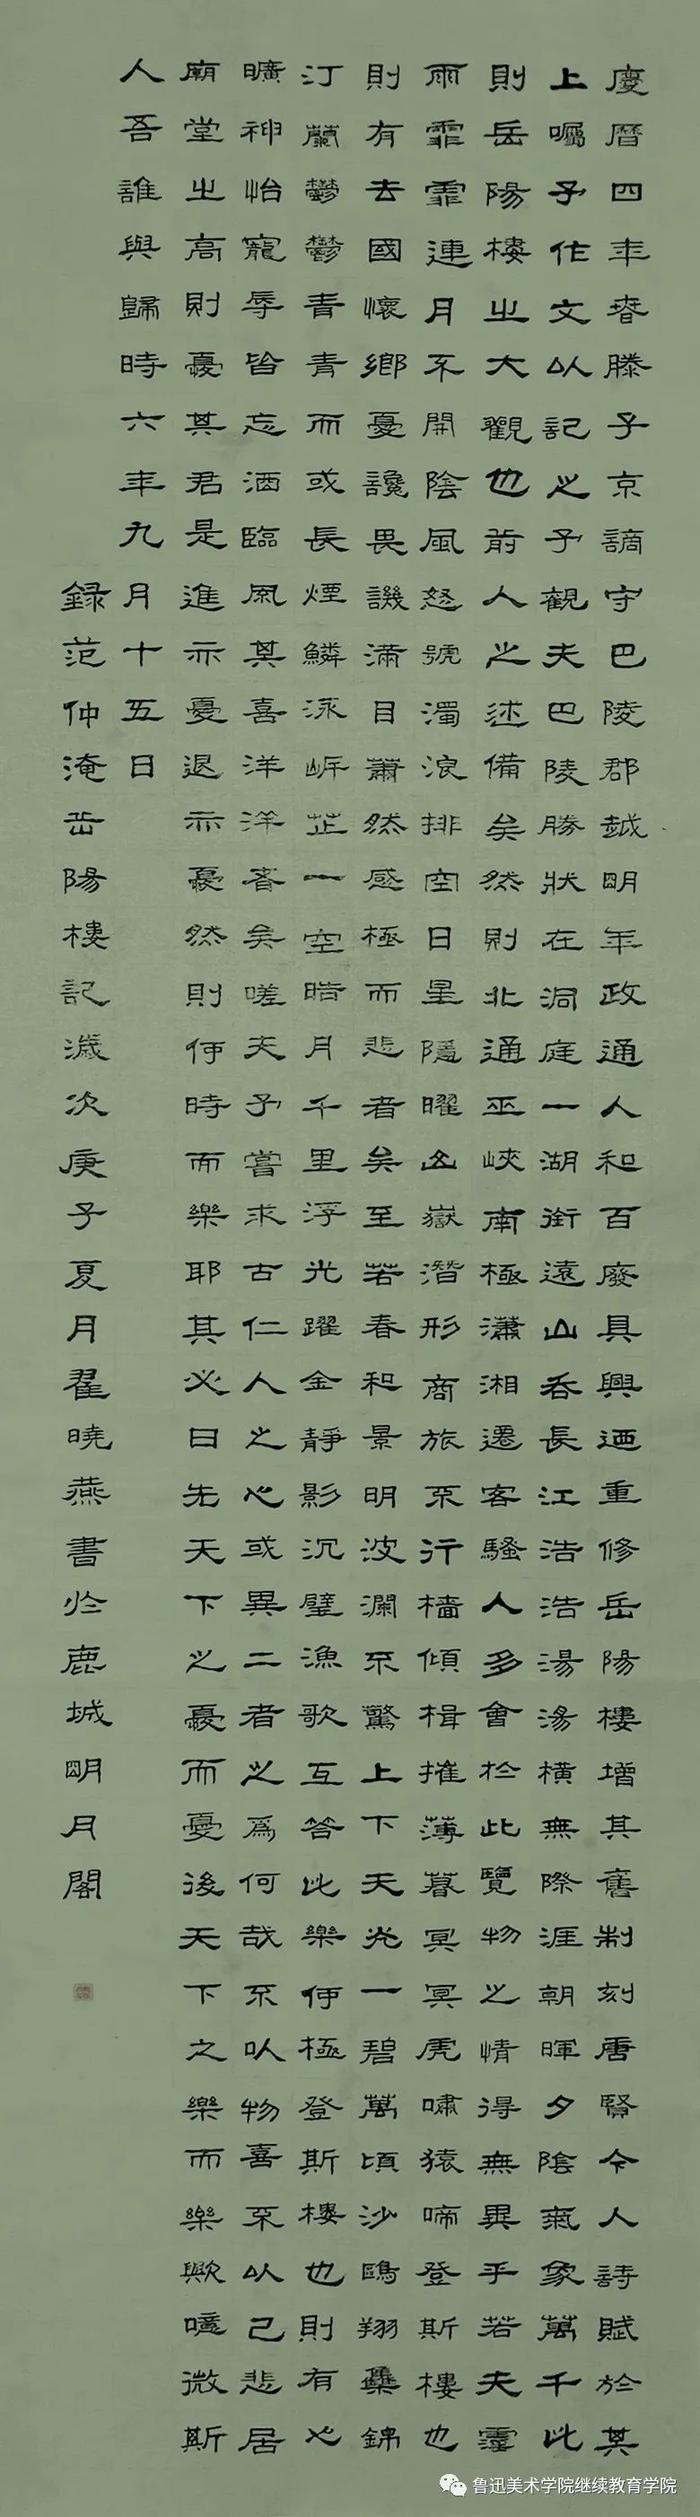 慶曆四年春滕子京謫守巴陵郡越明年政通人和百廢具興迺重修岳陽樓增其舊制刻唐賢今人詩賦於其
上囑予作文以記之予觀夫巴陵勝狀在洞庭一湖銜遠山吞長江浩浩湯湯橫無際涯朝暉夕陰氣象萬千此
則岳陽樓之大觀也前人之述備矣然則北通巫峽南極瀟湘遷客騷人多會於此覽物之情得無異乎若夫霪
雨霏霏連月不開陰風怒號濁浪排空日星隱曜山嶽潛形商旅不行檣傾楫摧薄暮冥冥虎嘯猿啼登斯樓也
則有去國懷鄉憂讒畏譏滿目蕭然感極而悲者矣至若春和景明波瀾不驚上下天光一碧萬頃沙鷗翔集錦
汀蘭鬱鬱青青而或長煙鱗泳岸芷一空皓月千里浮光躍金靜影沉璧漁歌互答此樂何極登斯樓也則有心
曠神怡寵辱皆忘酒臨風其喜洋洋者矣嗟夫予嘗求古仁人之心或異二者之為何哉不以物喜不以己悲居
廟堂之高則憂其君是進亦憂退亦憂然則何時而樂耶其必曰先天下之憂而憂後天下之樂而樂歟噫微斯
人吾誰與歸時六年九月十五日
錄范仲淹岳陽樓記歲次庚子夏月翟曉燕書於鹿城明月閣
鲁迅美术学院继续教育学院